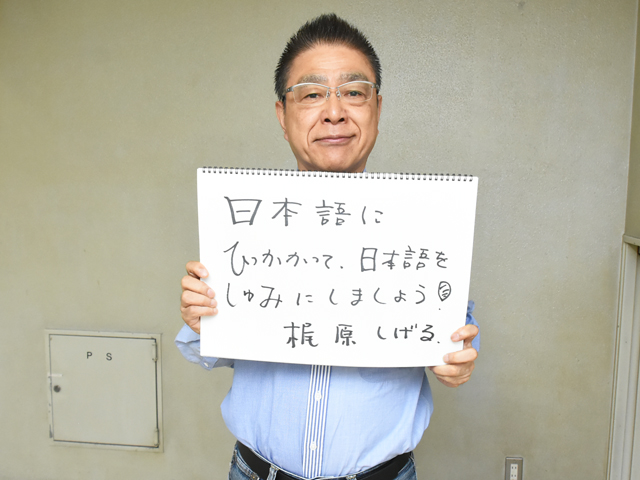 日本語に
ひっかかって、日本語を
しゅみにしましょう!
梶原しげる.
PS